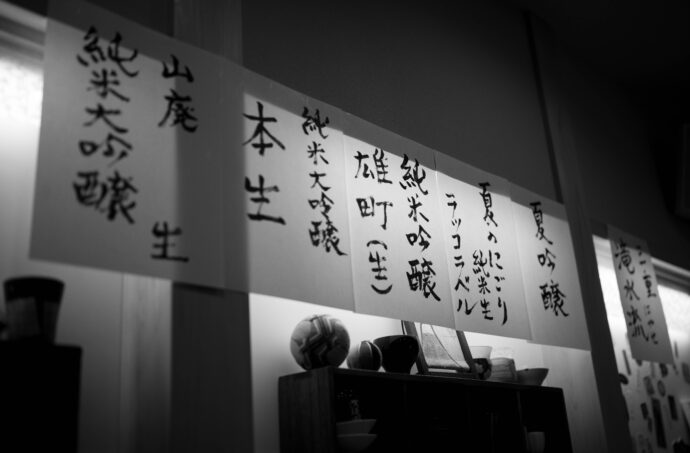 滝水流
夏吟醸
夏のにごり
純米生
ラッコラベル
純米吟醸
雄町(生)
純米大吟醸
本生
山廃 生
純米大吟醸